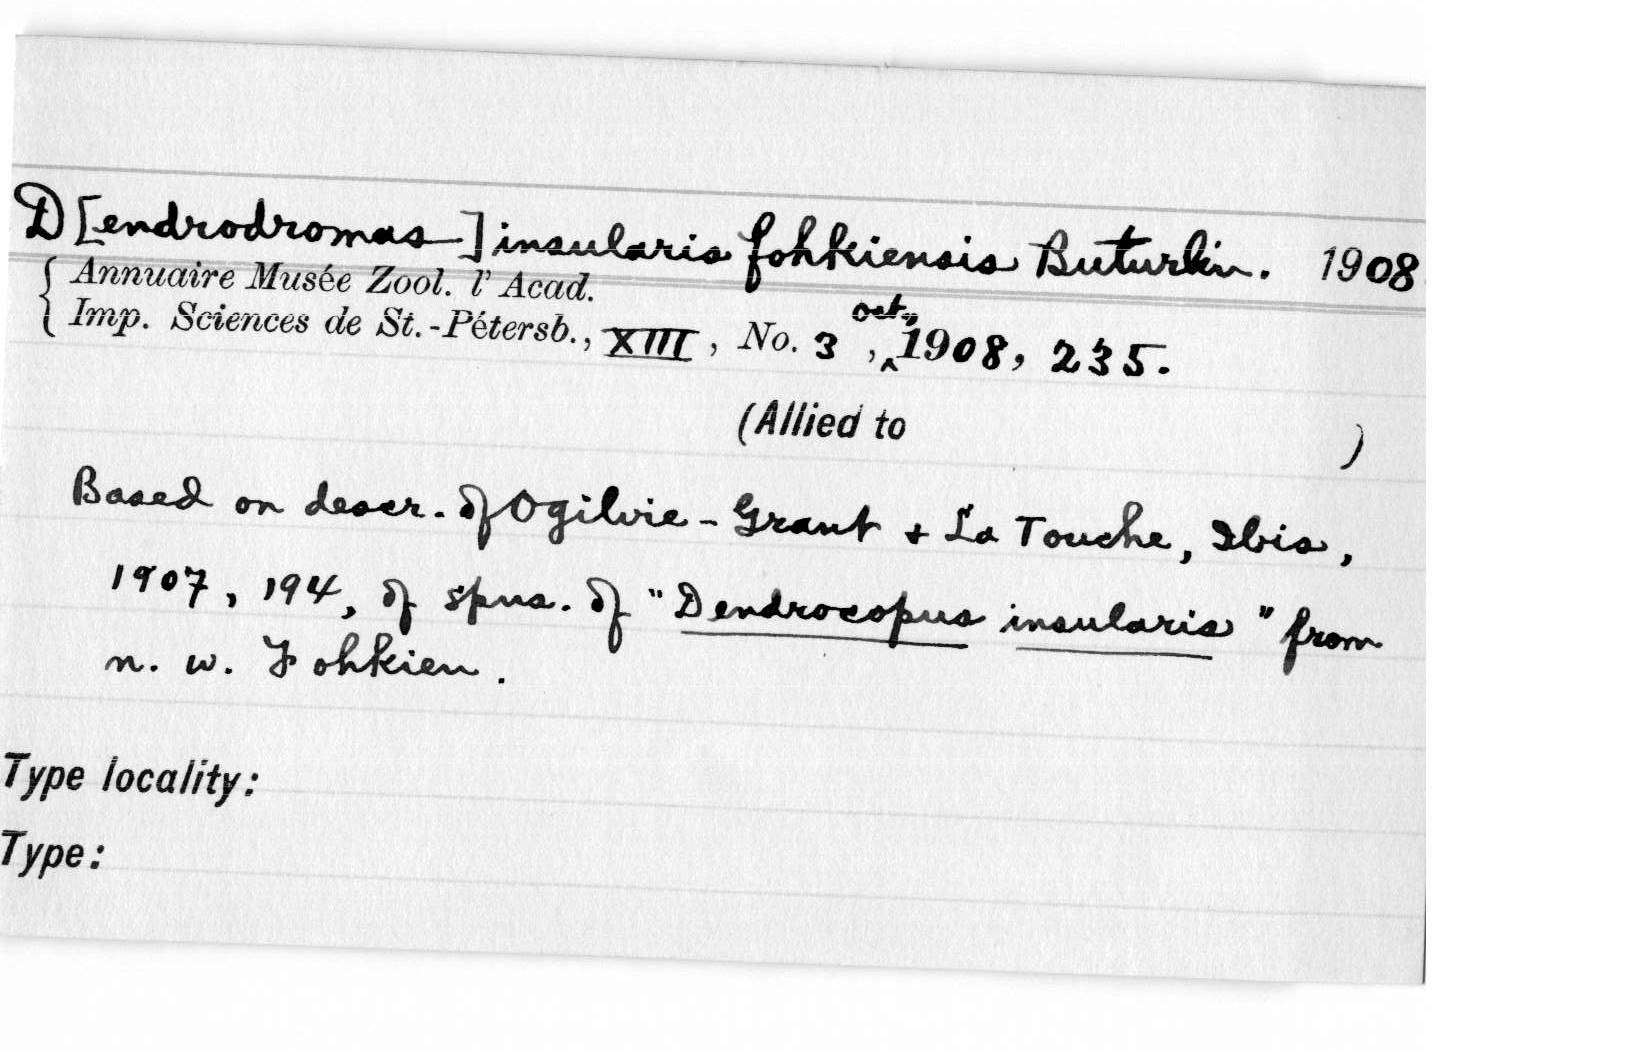 D[endrodromas] insularis fohkiensis Buturlin. 1908
{ Annuaire Musée Zool. l' Acad.
Imp. Sciences de St.-Pétersb., XIII, No. 3, oct., 1908, 235.
(Allied to )
Based on descr. of Ogilvie-Grant + La Touche, Ibis,
1907, 194, of spns. of "Dendrocopus insularis" from
n. w. Fohkien.
Type locality:
Type: